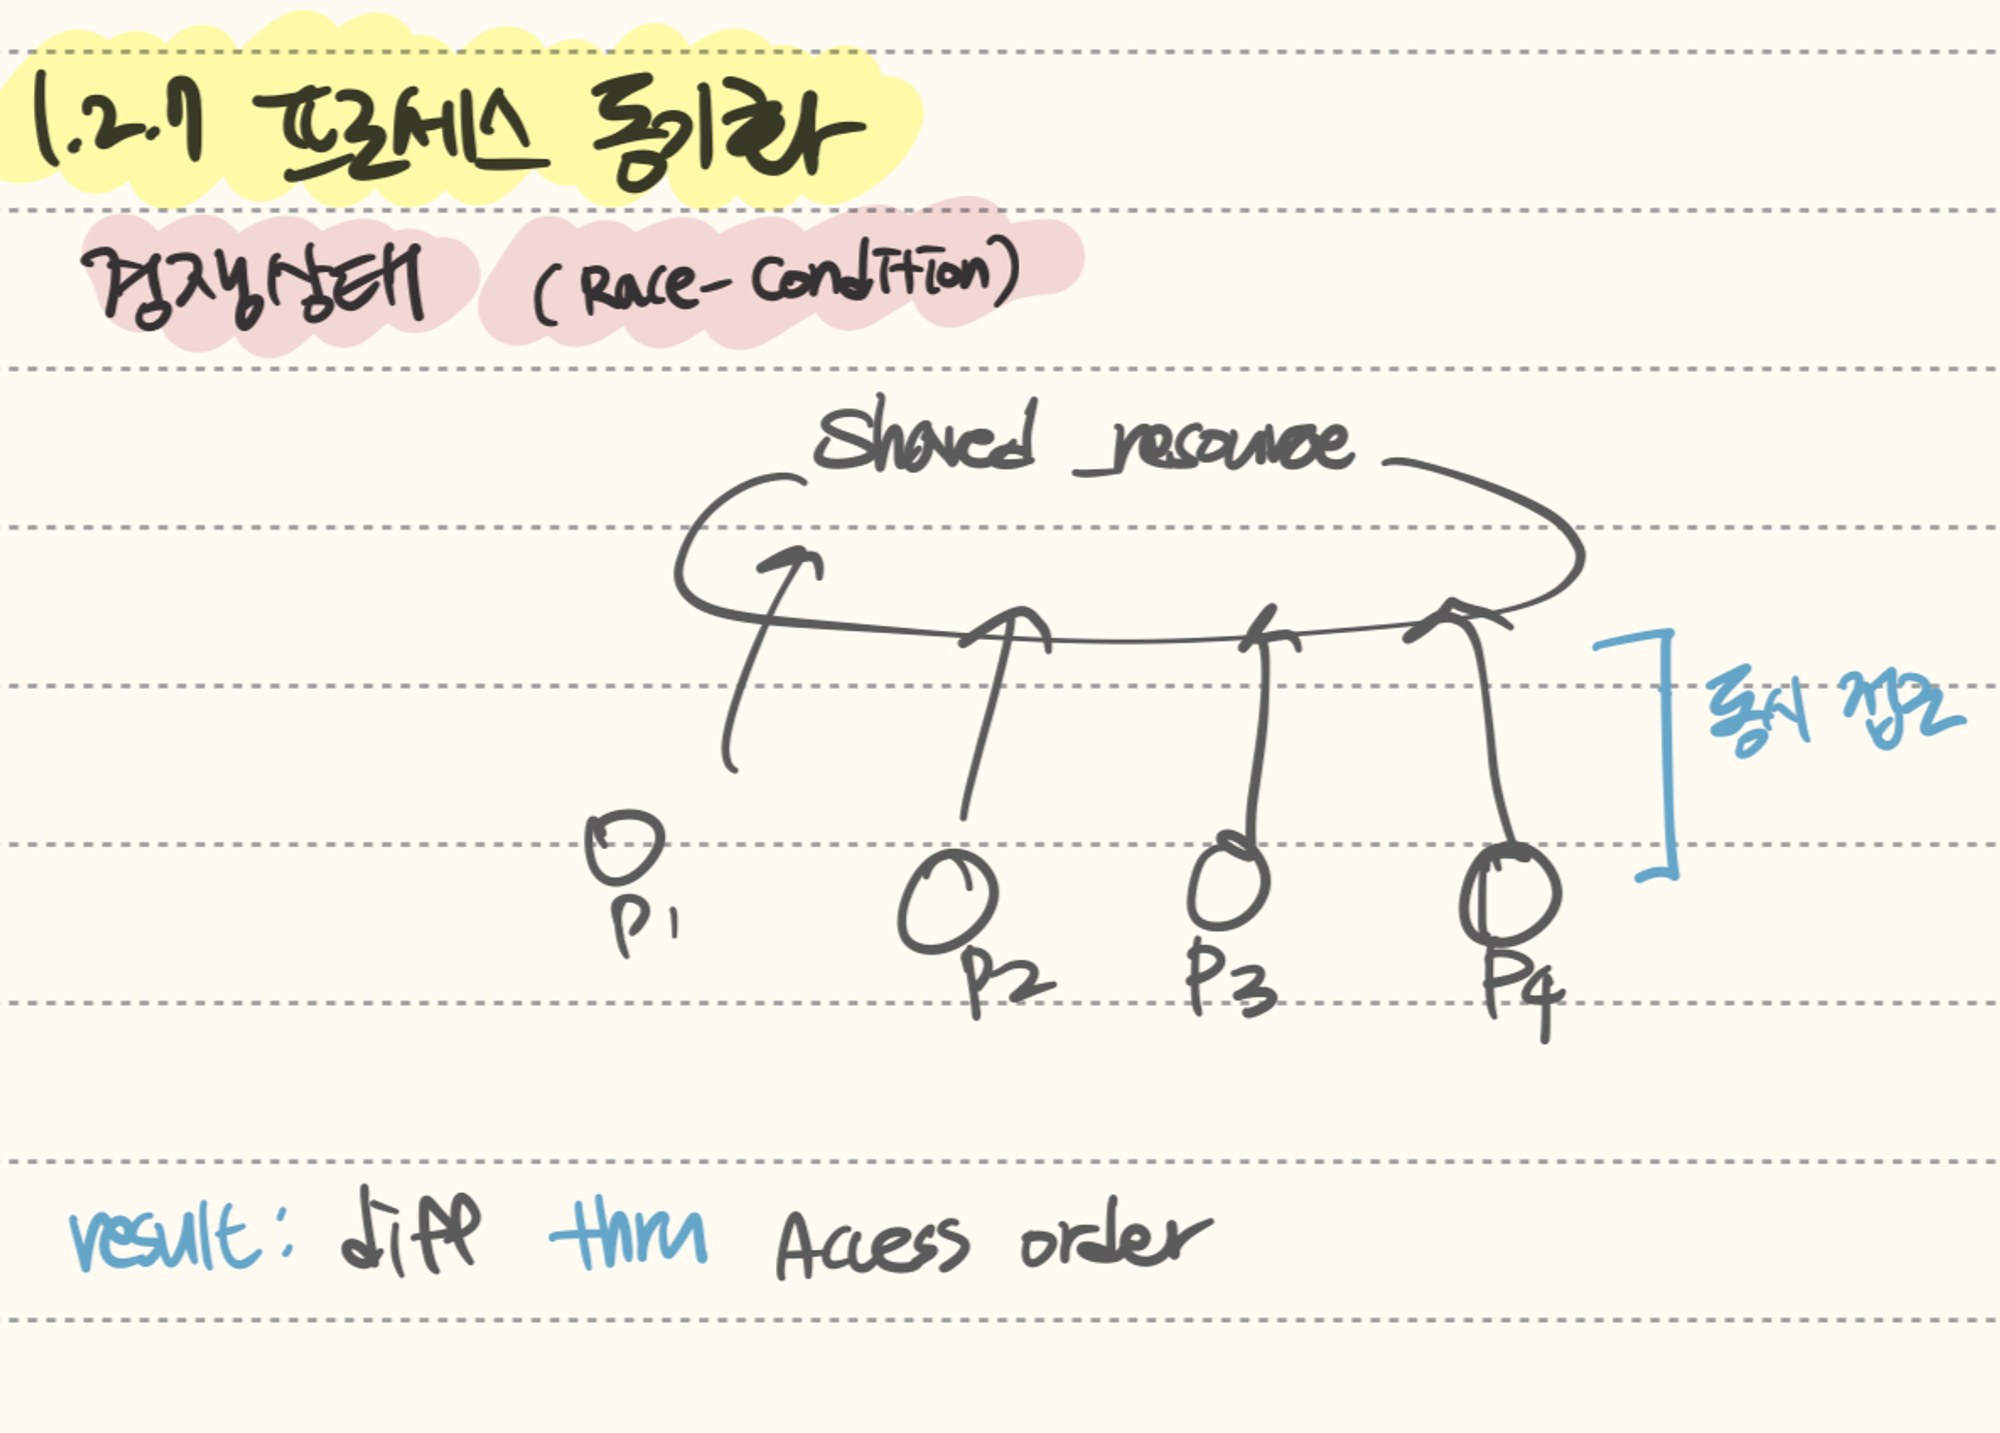 1.2.7 프로세스 동기화
경쟁상태 (Race-Condition)
Shared_resource
동시 접근
P1
P2
P3
P4
result: diff thru Access order